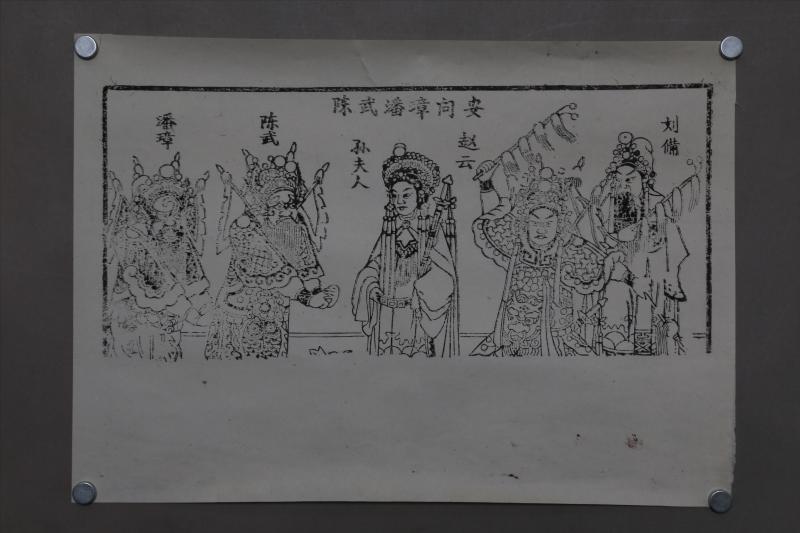 陈武潘璋问安
潘璋
陈武
孙夫人
赵云
刘備